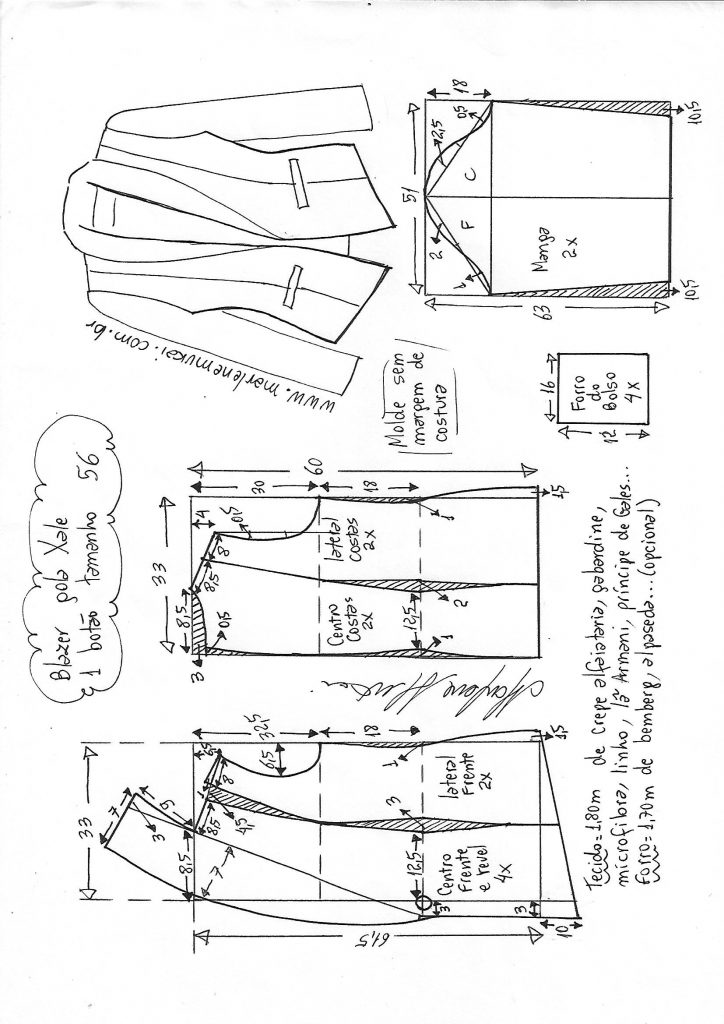 Blazer gola Xale
1 botão tamanho 56
www.marlenemukai.com.br
Molde sem
margem de
costura
33
7
5
3
8,5
8,5
7
4,5
8
1
6,5
32,5
18
6,5
1
3
12,5
lateral
Frente
2x
Centro
Frente
e revel
4x
3
3
61,5
10
1,5
33
60
30
18
4
0,5
8
8,5
8,5
0,5
3
lateral
Costas
2x
Centro
Costas
2x
12,5
1
2
1
1,5
51
18
2,5
0,5
C
F
2
1
Manga
2x
63
10,5
10,5
16
12
Forro
do
Bolso
4x
Tecido=1,80m de crepe alfaiataria, gabardine,
microfibra, linho, lã Armani, príncipe de Gales...
Forro=1,70m de bemberg, alpaseda...(opcional)